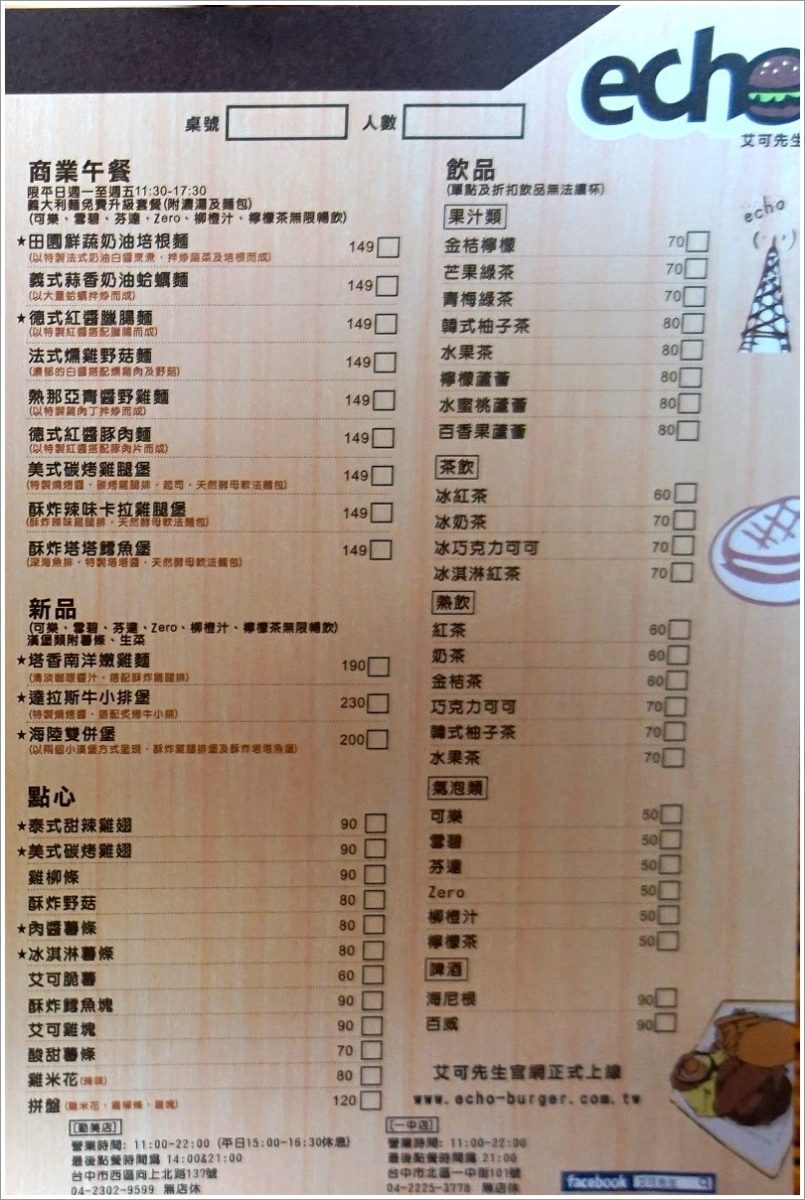 echo
艾可先生
桌號
人數
商業午餐
限平日週一至週五11:30-17:30
義大利麵免費升級套餐(附濃湯及麵包)
(可樂、雪碧、芬達、Zero、柳橙汁、檸檬茶無限暢飲)
★田園鮮蔬奶油培根麵 149
(以特製法式奶油白醬熬煮,拌炒蔬菜及培根而成)
義式蒜香奶油蛤蠣麵 149
(以大量蛤蠣拌炒而成)
★德式紅醬臘腸麵 149
(以特製紅醬搭配臘腸而成)
法式燻雞野菇麵 149
(濃郁的白醬搭配燻雞肉及野菇)
熱那亞青醬野雞麵 149
(以特製雞肉丁拌炒而成)
德式紅醬豚肉麵 149
(以特製紅醬搭配豚肉片而成)
美式碳烤雞腿堡 149
(特製燒烤醬,碳烤雞腿排,起司,天然酵母軟法麵包)
酥炸辣味卡拉雞腿堡 149
(酥炸辣味雞腿排,天然酵母軟法麵包)
酥炸塔塔鱈魚堡 149
(深海魚排,特製塔塔醬,天然酵母軟法麵包)
新品
(可樂、雪碧、芬達、Zero、柳橙汁、檸檬茶無限暢飲)
漢堡類附薯條、生菜
★塔香南洋嫩雞麵 190
(清淡咖哩醬汁,搭配酥炸雞腿排)
★達拉斯牛小排堡 230
(特製燒烤醬,搭配炙烤牛小排)
★海陸雙併堡 200
(以兩個小漢堡方式呈現,酥炸雞腿排堡及酥炸塔塔魚堡)
點心
★泰式甜辣雞翅 90
★美式碳烤雞翅 90
雞柳條 90
酥炸野菇 80
★肉醬薯條 80
★冰淇淋薯條 80
艾可脆薯 60
酥炸鱈魚塊 90
艾可雞塊 90
酸甜薯條 70
雞米花(辣味) 80
拼盤(雞米花、雞柳條、雞塊) 120
飲品
(單點及折扣飲品無法續杯)
果汁類
金桔檸檬 70
芒果綠茶 70
青梅綠茶 70
韓式柚子茶 80
水果茶 80
檸檬蘆薈 80
水蜜桃蘆薈 80
百香果蘆薈 80
茶飲
冰紅茶 60
冰奶茶 70
冰巧克力可可 70
冰淇淋紅茶 70
熱飲
紅茶 60
奶茶 60
金桔茶 60
巧克力可可 70
韓式柚子茶 70
水果茶 70
氣泡類
可樂 50
雪碧 50
芬達 50
Zero 50
柳橙汁 50
檸檬茶 50
啤酒
海尼根 90
百威 90
echo
艾可先生官網正式上線
www.echo-burger.com.tw
[勤美店]
營業時間: 11:00-22:00 (平日15:00-16:30休息)
最後點餐時間為 14:00&21:00
台中市西區向上北路137號
04-2302-9599 無店休
[一中店]
營業時間: 11:00-22:00
最後點餐時間為 21:00
台中市北區一中街101號
04-2225-3778 無店休
facebook 艾可先生